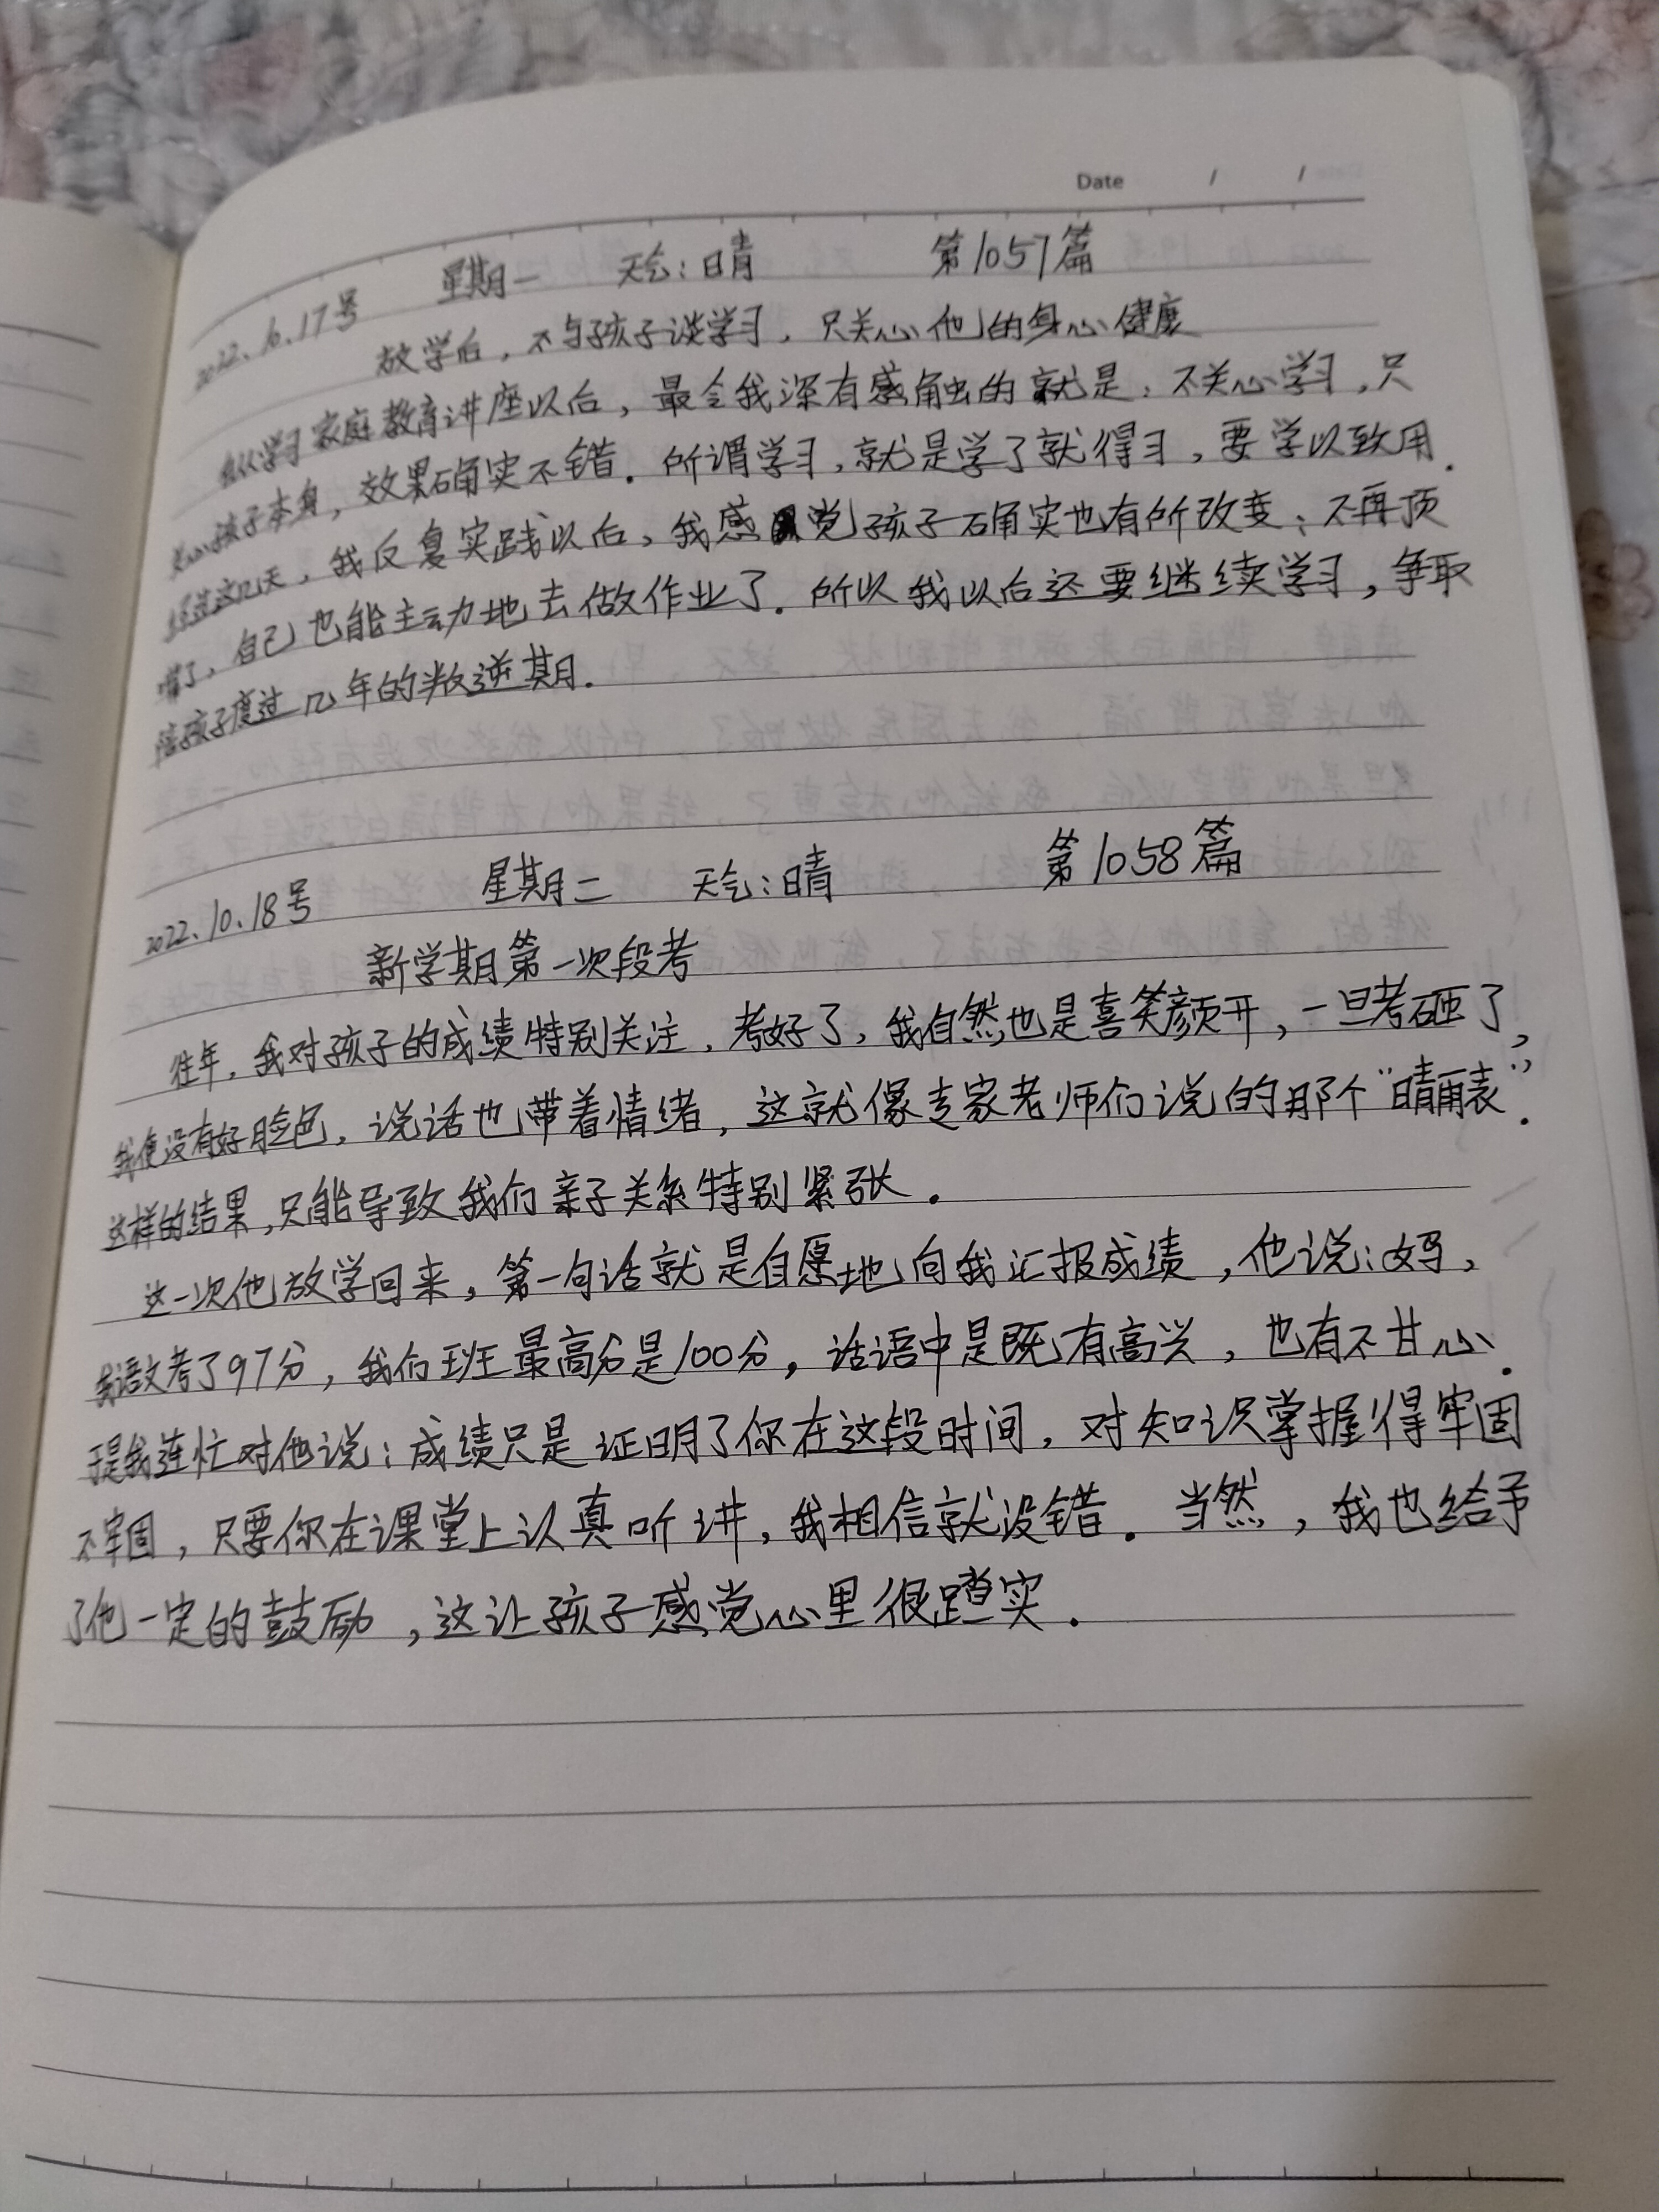 Date / /
2022.10.17号 星期一 天气:晴 第1057篇
放学后,不与孩子谈学习,只关心他的身心健康
自从学习家庭教育讲座以后,最令我深有感触的就是,不关心学习,只
关心孩子本身,效果确实不错.所谓学习,就是学了就得习,要学以致用.
经过这几天,我反复实践以后,我感觉孩子确实也有所改变:不再顶
嘴了,自己也能主动地去做作业了.所以我以后还要继续学习,争取
陪孩子度过几年的叛逆期.
2022.10.18号 星期二 天气:晴 第1058篇
新学期第一次段考
往年,我对孩子的成绩特别关注,考好了,我自然也是喜笑颜开,一旦考砸了,
我便没有好脸色,说话也带着情绪,这就像专家老师们说的那个“晴雨表”.
这样的结果,只能导致我们亲子关系特别紧张.
这一次他放学回来,第一句话就是自愿地向我汇报成绩,他说:妈,
我语文考了97分,我们班最高分是100分,话语中是既有高兴,也有不甘心.
于是我连忙对他说:成绩只是证明了你在这段时间,对知识掌握得牢固
不牢固,只要你在课堂上认真听讲,我相信就没错.当然,我也给予
了他一定的鼓励,这让孩子感觉心里很蹬实.